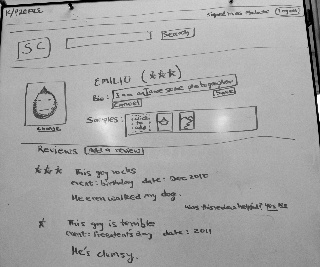 SC
Search
EMILIO (★★★)
Bio: I am an awesome photographer
Cancel Save
Samples: click to add
change
Reviews Add a review
★★★ This guy rocks
event: birthday date: Dec 2010
He even walked my dog.
was this review helpful? Yes No
★ This guy is terrible
event: President's day date: 2011
He's clumsy.